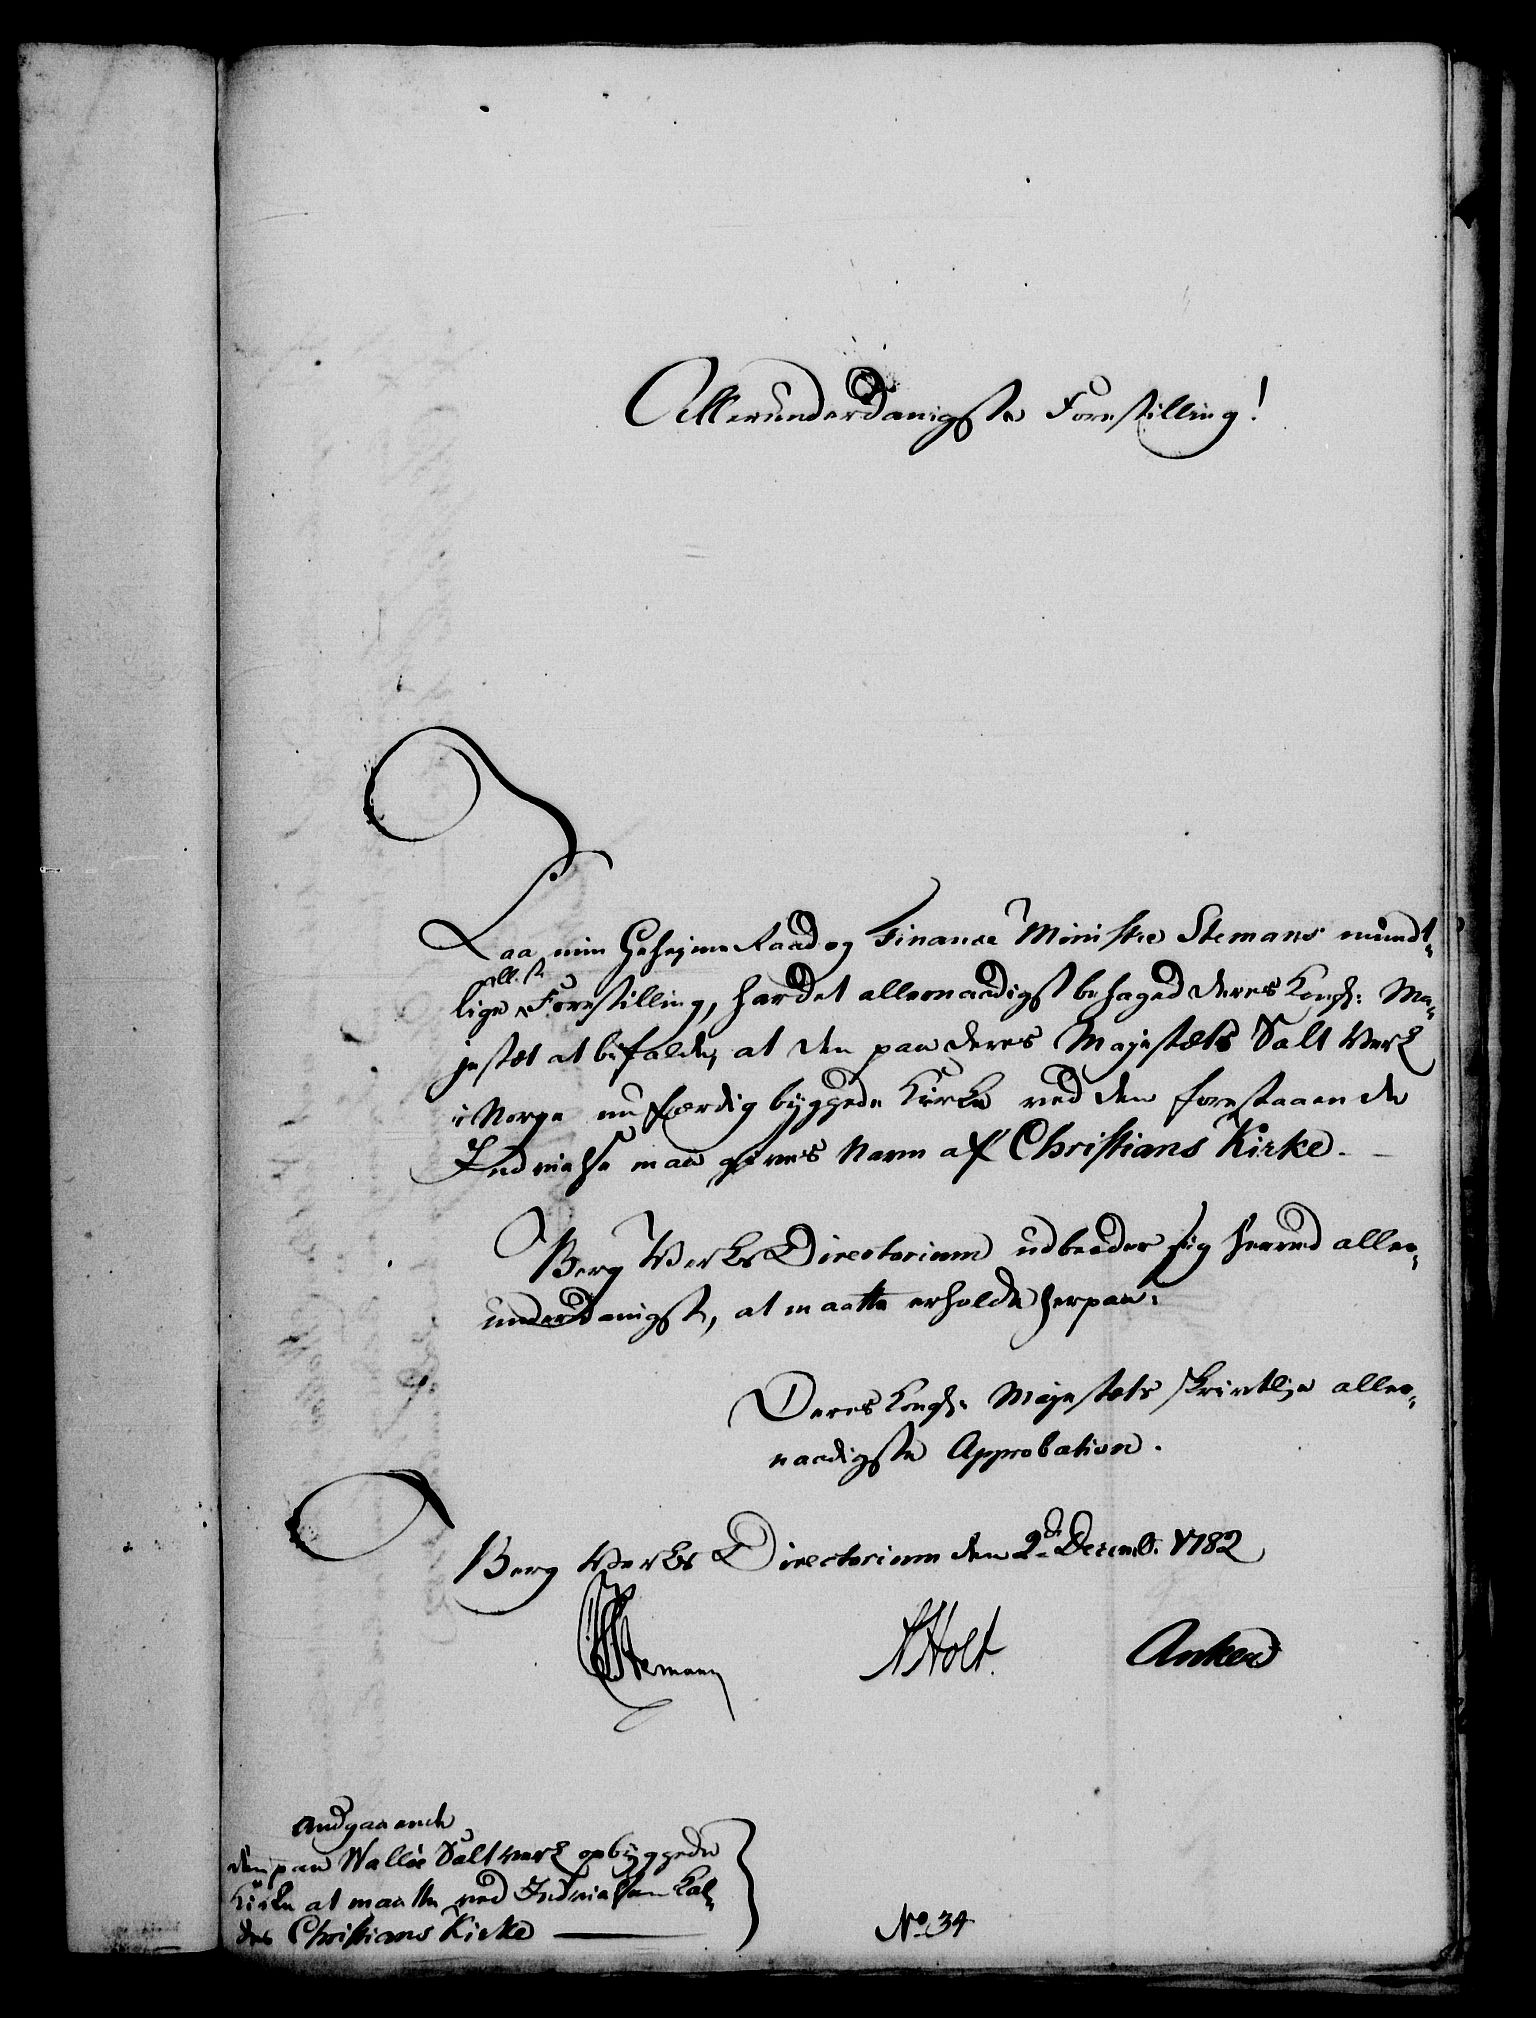 Allerunderdanigste Forestilling!
Paa min Geheyme Raad og Finance Ministre Stemans mundt-
allst.
lige Forestilling, har det allernaadigst behaged Deres Kongl: Ma-
jestæt at bifalde, at den paa Deres Majestæts Salt Verk
i Norge nu færdig byggede Kirke ved den forestaaende
Indvielse maa gives Navn af Christians Kirke.
Berg Verks Directorium udbeeder sig herved aller-
underdanigst, at maatte erholde herpaa:
Deres Kongl: Majestæts skrivtlige aller-
naadigste Approbation.
Berg Verks Directorium den 2de Decemb: 1782
Stemann
Holt.
Anker
Andgaaende
den paa Walløe Saltverk opbyggede
Kirke at maatte ved Indvielsen kal-
des Christians Kirke
No 34